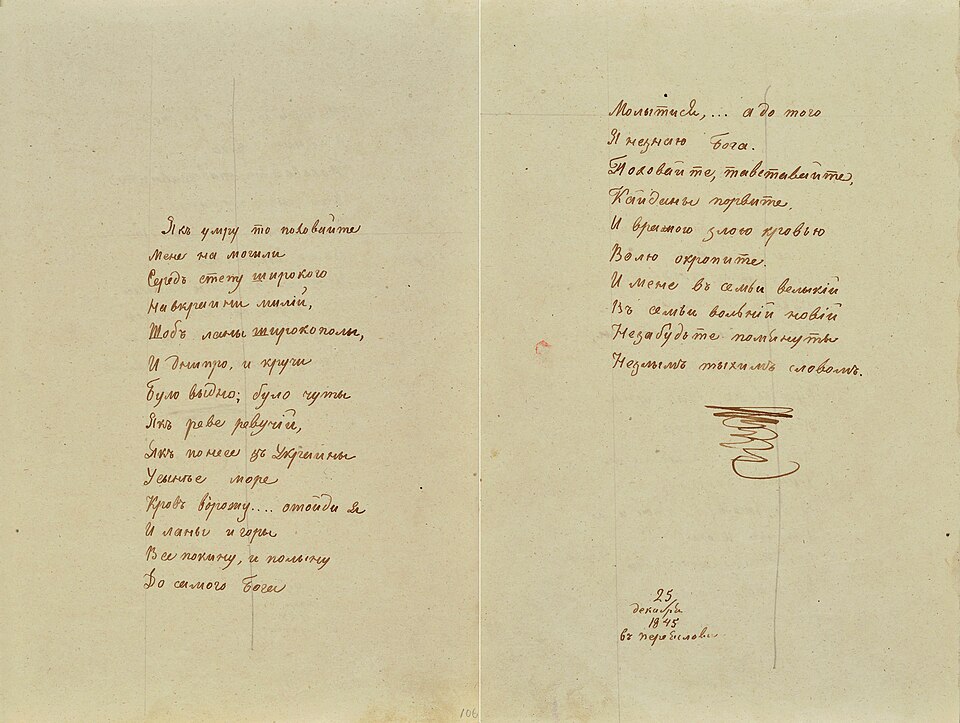 Якъ умру то поховайте
Мене на могили
Середъ степу широкого
На вкраини милій,
Щобъ ланы широкополы,
И Днипро, и кручи
Було выдно; було чуты
Якъ реве ревучій,
Якъ понесе зъ Украины
У сынѣе море
Кровъ ворожу.... отойди я
И ланы и горы
Все покину, и полыну
До самого Бога
106
Молытися,... а до того
Я незнаю Бога.
Поховайте, та вставайте,
Кайданы порвите,
И вражою злою кровью
Волю окропите.
И мене въ семьи велыкій
Въ семьи вольній новій
Незабудьте помянуты
Незлымъ тыхимъ словомъ.
25
декабря
1845
въ Переяслови